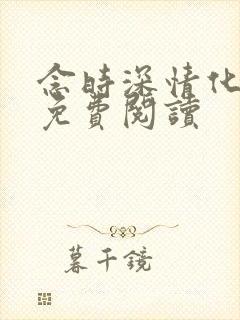 念時深情化
免費閱讀
暮千鏡